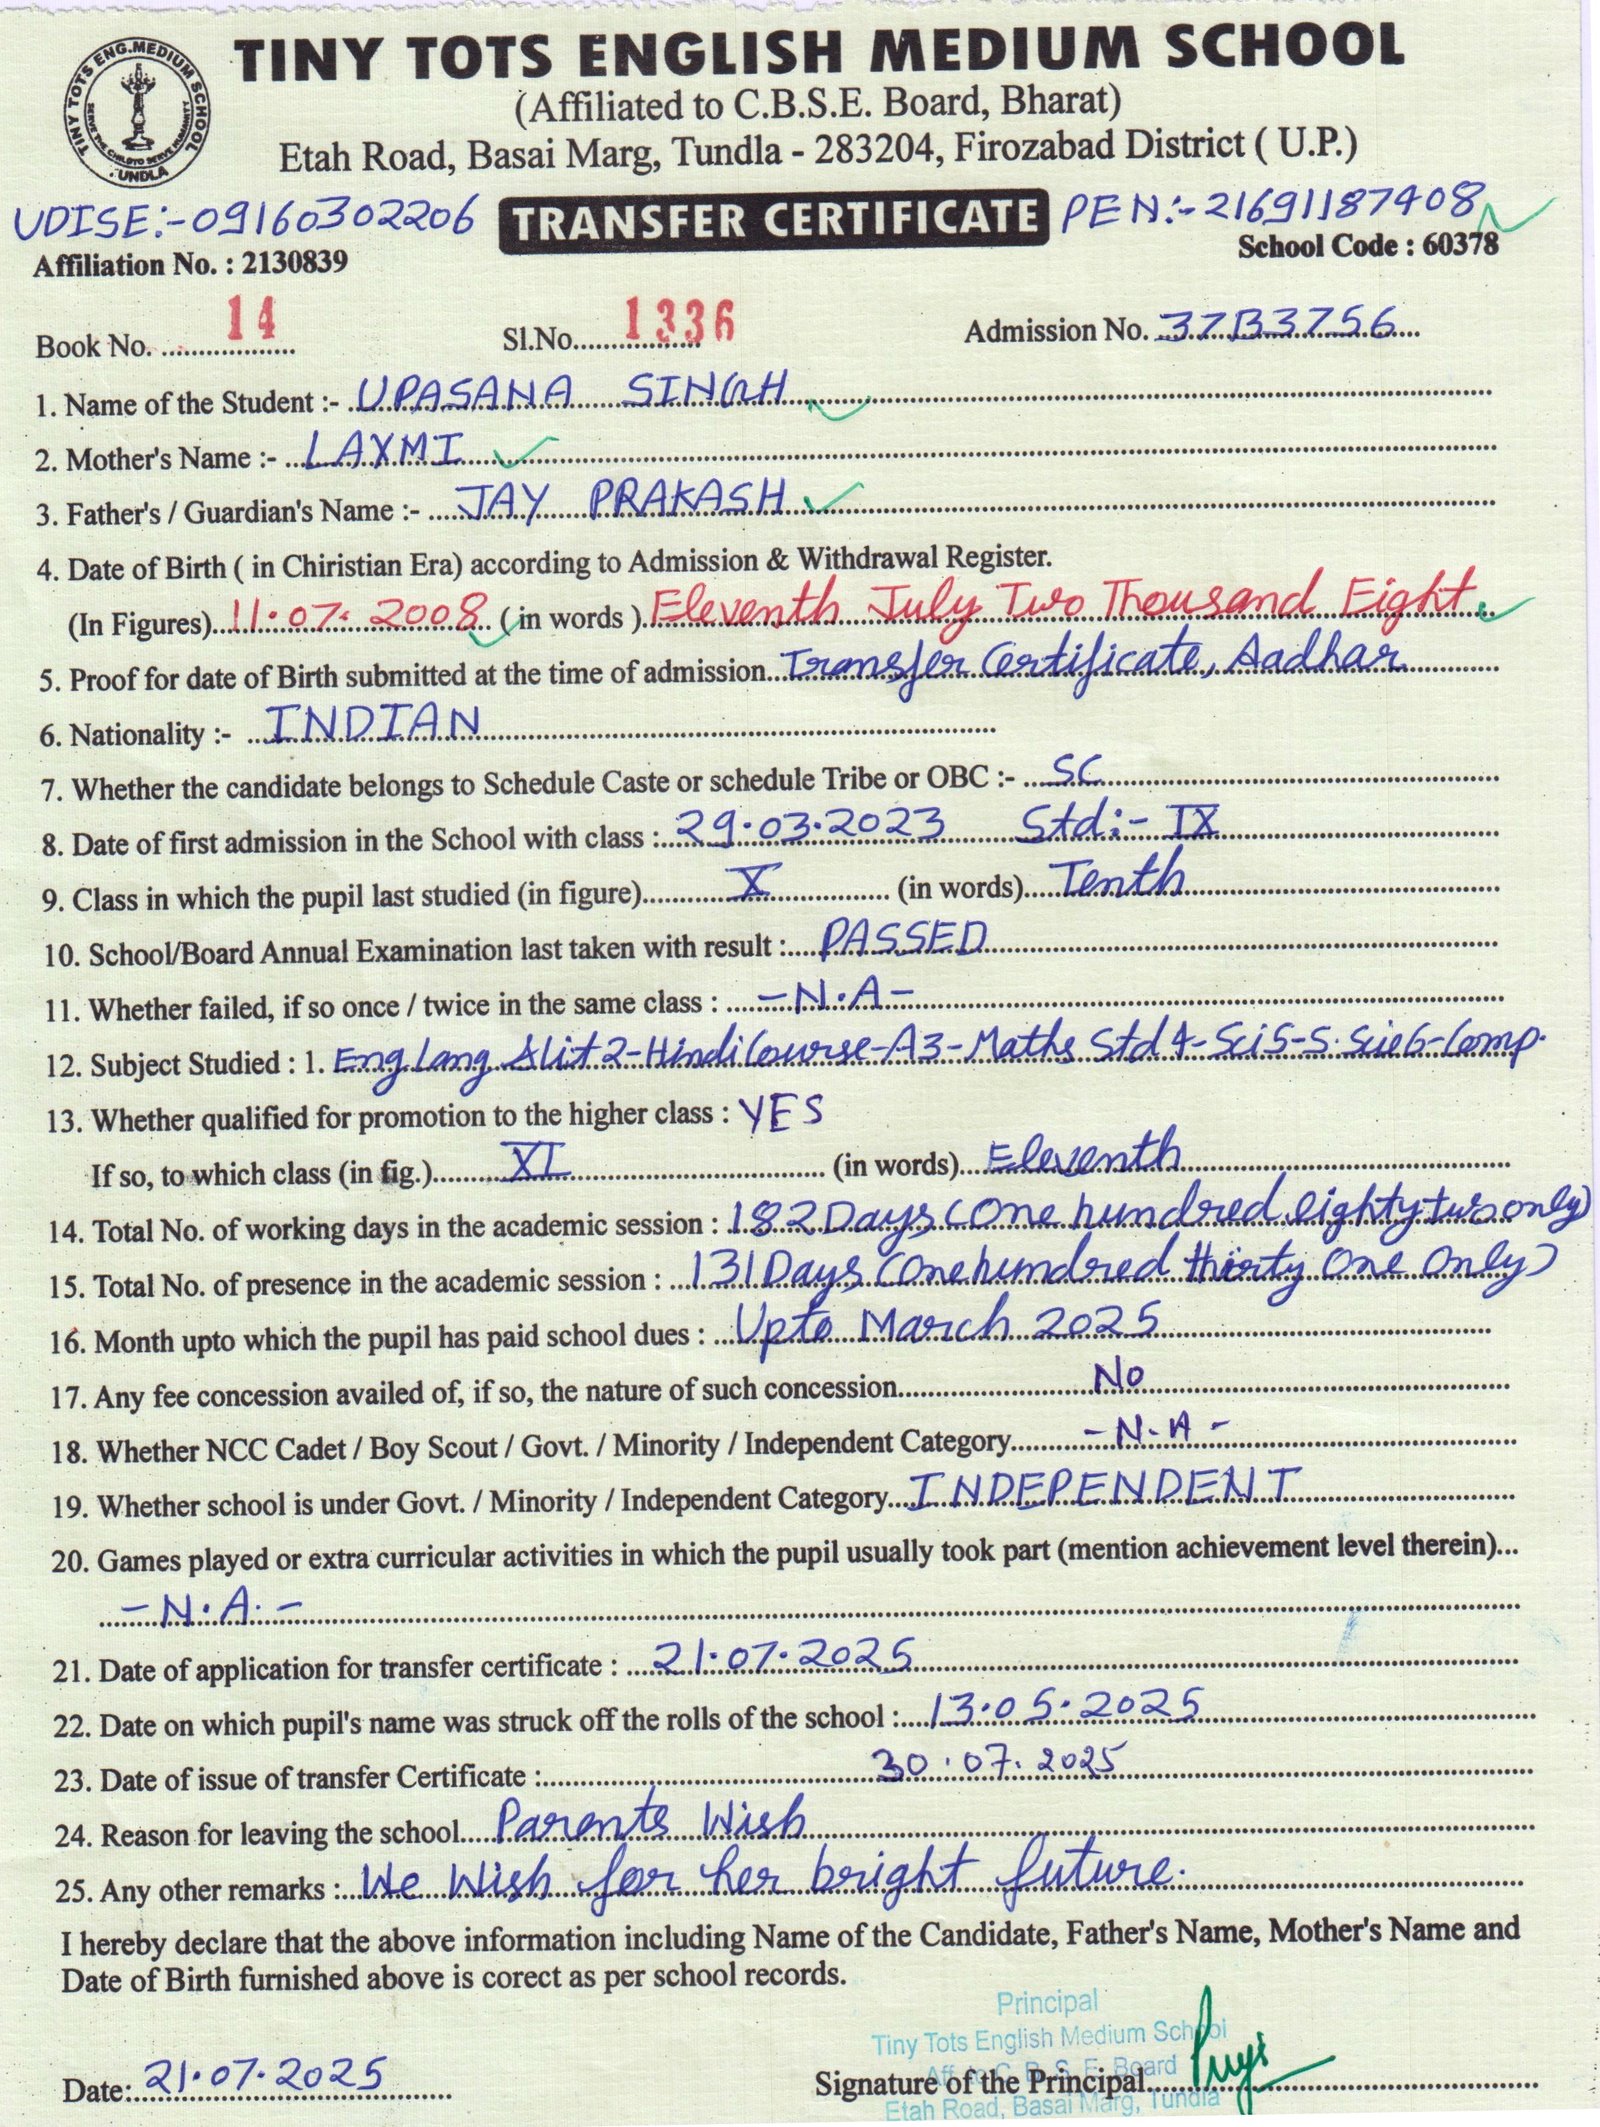 TINY TOTS ENG.MEDIUM SCHOOL
TUNDLA
TINY TOTS ENGLISH MEDIUM SCHOOL
(Affiliated to C.B.S.E. Board, Bharat)
Etah Road, Basai Marg, Tundla - 283204, Firozabad District ( U.P.)
UDISE:-09160302206 TRANSFER CERTIFICATE PEN:-21691187408
Affiliation No. : 2130839 School Code : 60378
Book No. 14 Sl.No. 1336 Admission No. 37B3756
1. Name of the Student :- UPASANA SINGH
2. Mother's Name :- LAXMI
3. Father's / Guardian's Name :- JAY PRAKASH
4. Date of Birth ( in Chiristian Era) according to Admission & Withdrawal Register.
(In Figures) 11.07.2008 ( in words ) Eleventh July Two Thousand Eight
5. Proof for date of Birth submitted at the time of admission Transfer Certificate, Aadhar
6. Nationality :- INDIAN
7. Whether the candidate belongs to Schedule Caste or schedule Tribe or OBC :- SC
8. Date of first admission in the School with class : 29.03.2023 Std:- IX
9. Class in which the pupil last studied (in figure) X (in words) Tenth
10. School/Board Annual Examination last taken with result : PASSED
11. Whether failed, if so once / twice in the same class : -N.A-
12. Subject Studied : 1. Eng Lang &Lit 2-Hindi Course-A3-Maths Std 4-Sci 5-S.Scie6-Comp.
13. Whether qualified for promotion to the higher class : YES
If so, to which class (in fig.) XI (in words) Eleventh
14. Total No. of working days in the academic session : 182 Days (One hundred eighty two only)
15. Total No. of presence in the academic session : 131 Days (One hundred thirty One Only)
16. Month upto which the pupil has paid school dues : Upto March 2025
17. Any fee concession availed of, if so, the nature of such concession No
18. Whether NCC Cadet / Boy Scout / Govt. / Minority / Independent Category -N.A-
19. Whether school is under Govt. / Minority / Independent Category INDEPENDENT
20. Games played or extra curricular activities in which the pupil usually took part (mention achievement level therein)...
-N.A.-
21. Date of application for transfer certificate : 21.07.2025
22. Date on which pupil's name was struck off the rolls of the school : 13.05.2025
23. Date of issue of transfer Certificate : 30.07.2025
24. Reason for leaving the school Parents Wish
25. Any other remarks : We Wish for her bright future.
I hereby declare that the above information including Name of the Candidate, Father's Name, Mother's Name and
Date of Birth furnished above is corect as per school records.
Principal
Tiny Tots English Medium School
Aff. to C. B. S. E. Board
Date: 21.07.2025 Signature of the Principal
Etah Road, Basai Marg, Tundla